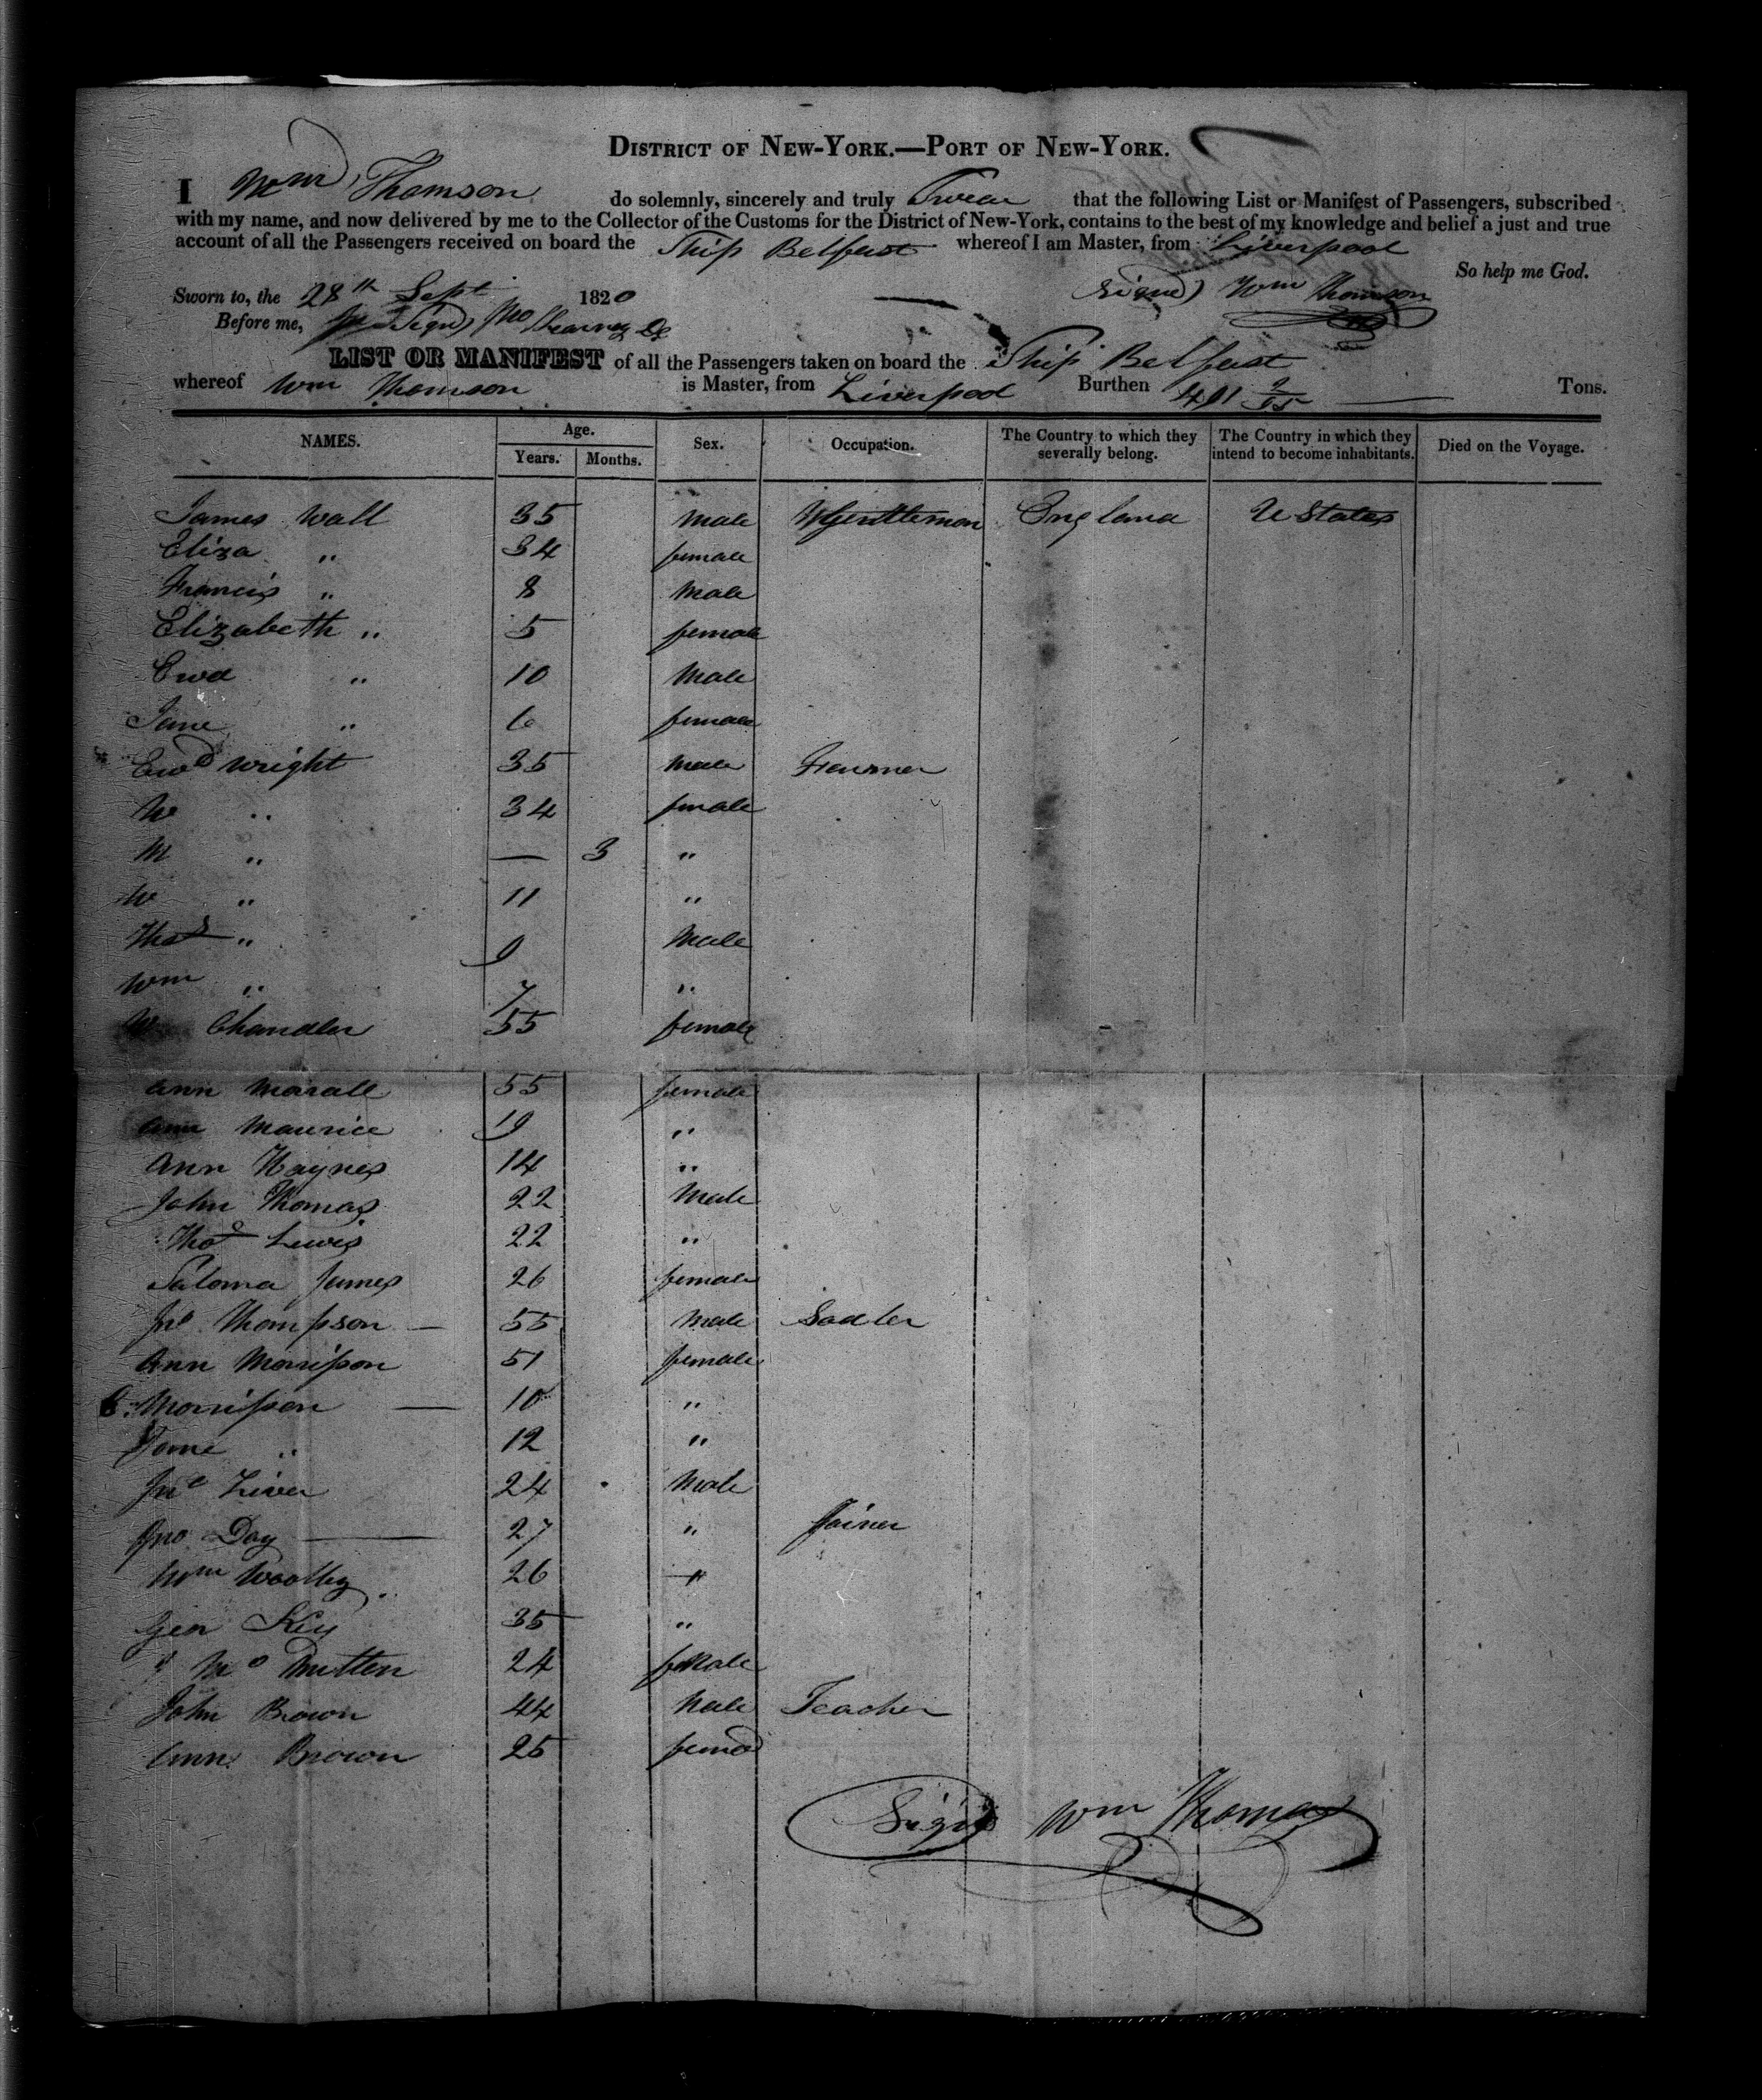 DISTRICT OF NEW-YORK.—PORT OF NEW-YORK.
I Wm Thomson do solemnly, sincerely and truly Swear that the following List or Manifest of Passengers, subscribed
with my name, and now delivered by me to the Collector of the Customs for the District of New-York, contains to the best of my knowledge and belief a just and true
account of all the Passengers received on board the Ship Belfast whereof I am Master, from Liverpool
So help me God.
Sworn to, the 28th Sept 1820 Signed) Wm Thomson
Before me, (Signd) Jno
LIST OR MANIFEST of all the Passengers taken on board the Ship Belfast
whereof Wm Thomson is Master, from Liverpool Burthen 401 Tons.
NAMES. Age. Years. Months. Sex. Occupation. The Country to which they severally belong. The Country in which they intend to become inhabitants. Died on the Voyage.
James Wall 35 Male Gentleman England U States
Eliza " 34 female
Francis " 8 Male
Elizabeth " 5 female
Ewd " 10 Male
Jane " 6 female
Ewd Wright 35 Male Farmer
W " 34 female
M " — 3 "
W " 11 "
Thos " 9 Male
Wm " 7 "
Chandler 55 female
Ann Marall 55 female
Ann Maurice 19 "
Ann Haynes 14 "
John Thomas 22 Male
Thos Lewis 22 "
Saloma James 26 female
Jno Thompson — 55 Male Sadler
Ann Morrison 51 female
Morrison — 10 "
Jane " 12 "
Jno Liver 24 Male
Jno Day — 27 " Joiner
Wm Woolley 26 "
Geo Key 35 "
24 female
John Brown 44 Male Teacher
Ann Brown 25 female
Signd Wm Thomas